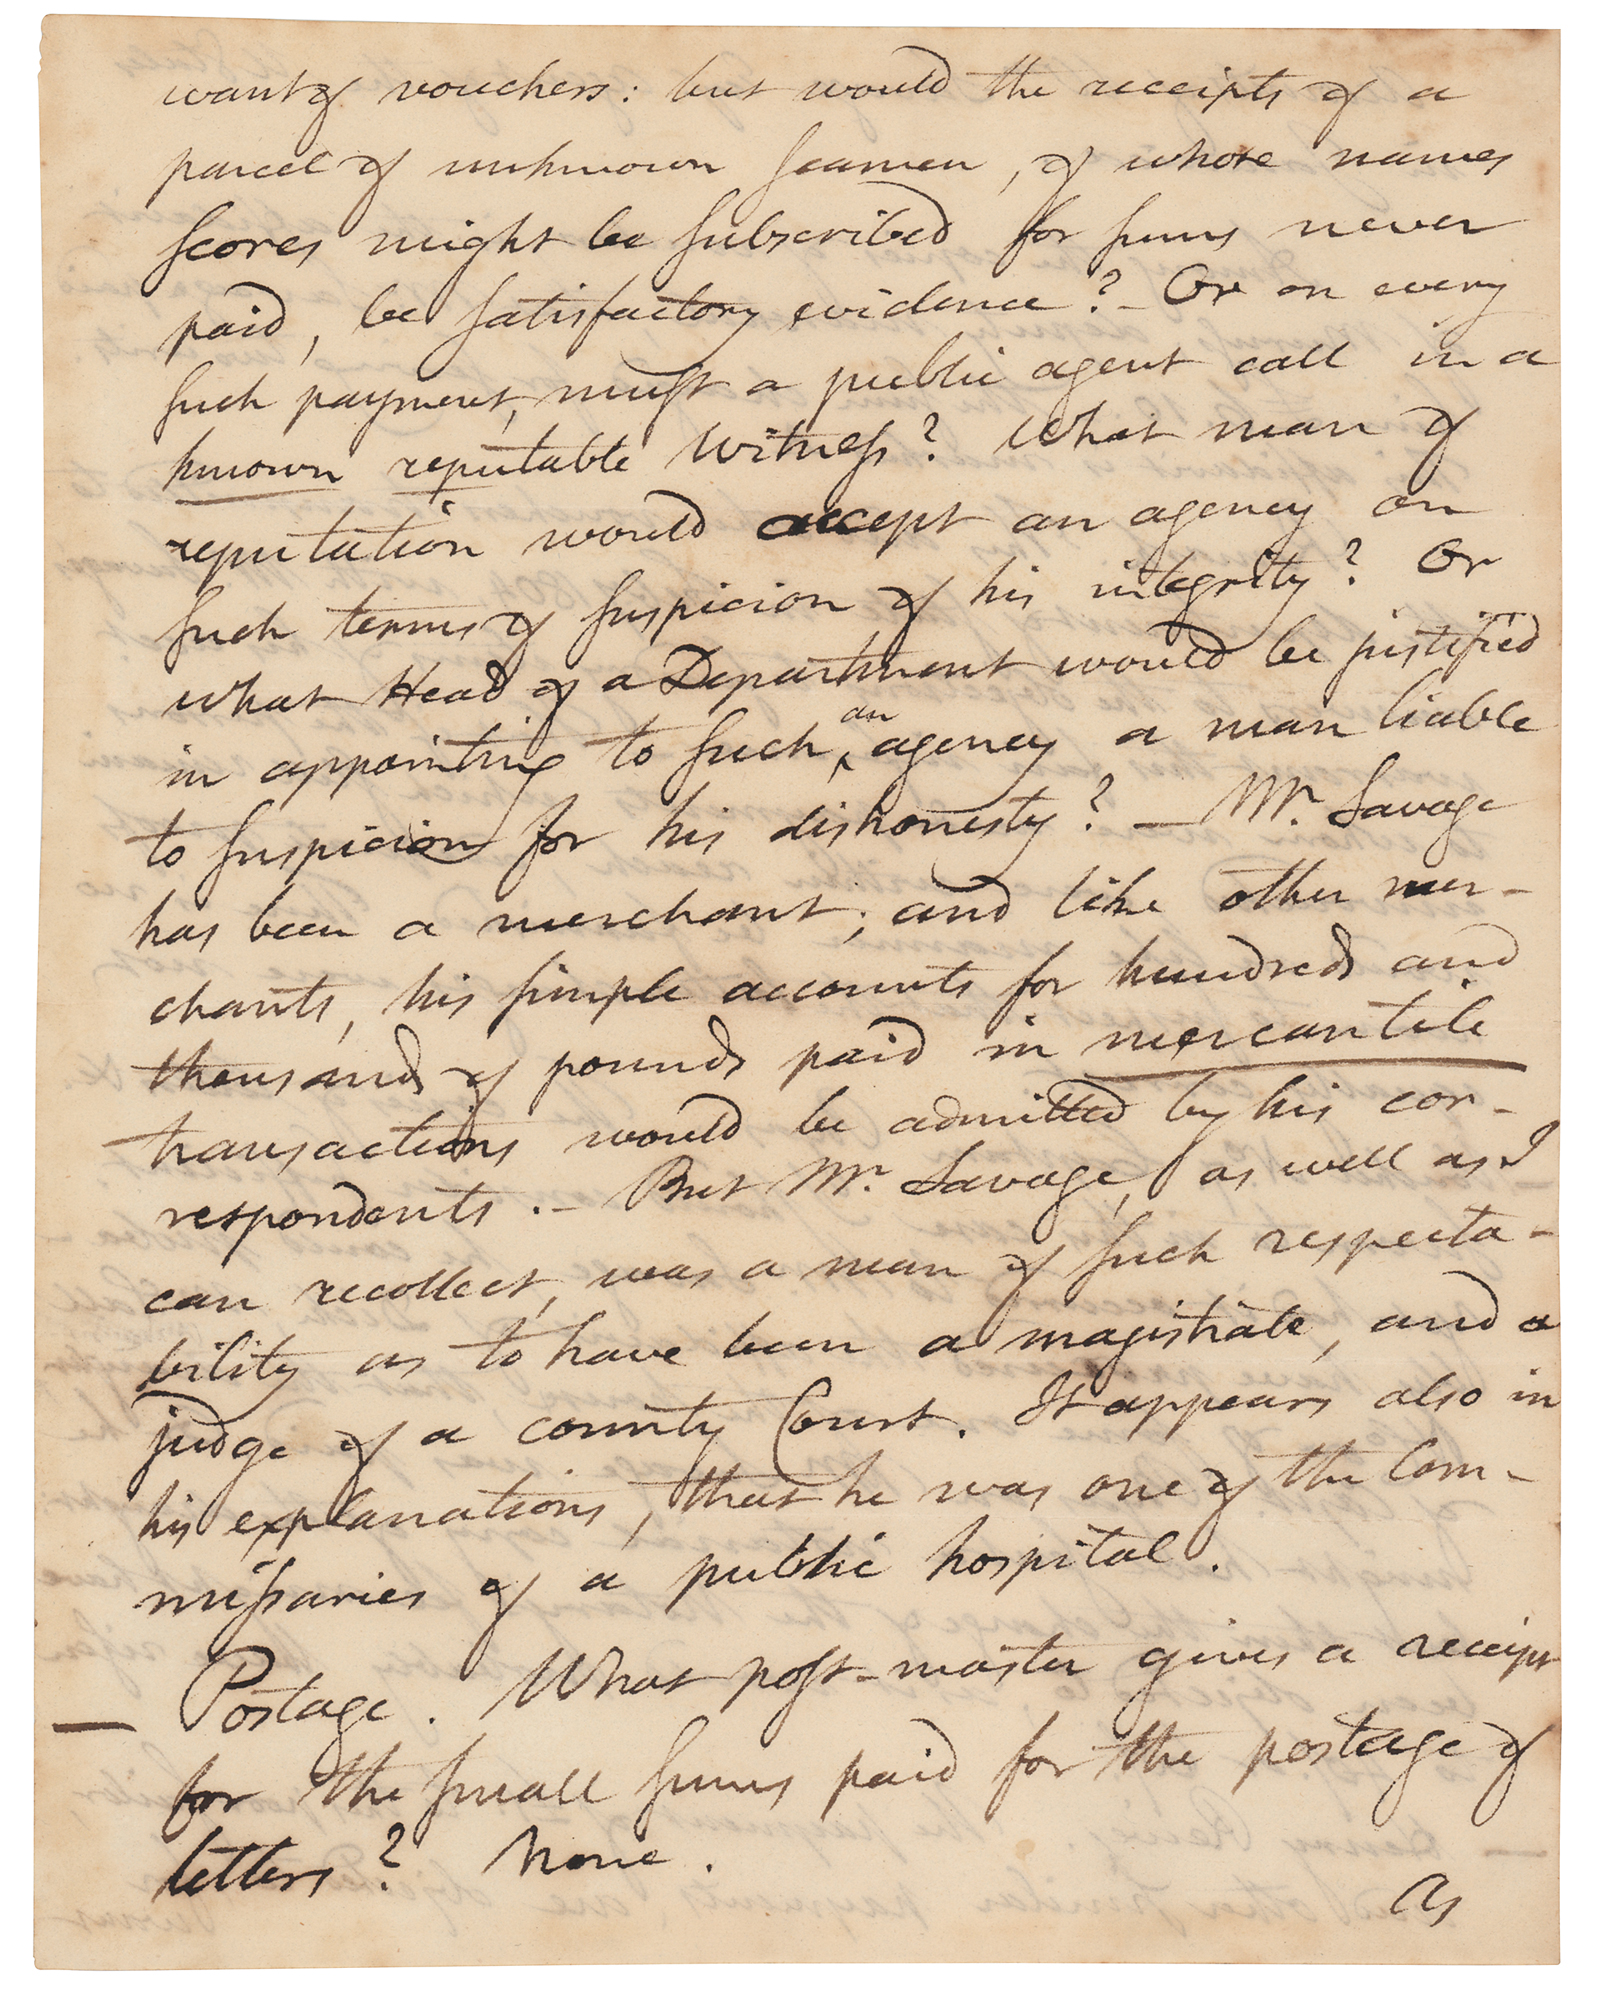 want of vouchers: but would the receipts of a
parcel of unknown seamen, of whose names
scores might be subscribed for sums never
paid, be satisfactory evidence? – Or on every
such payment, must a public agent call in a
known reputable witness? What man of
reputation would accept an agency on
such terms of suspicion of his integrity? Or
what Head of a Department would be justified
in appointing to such an agency a man liable
to suspicion for his dishonesty? – Mr. Savage
has been a merchant; and like other mer-
chants, his simple accounts for hundreds and
thousands of pounds paid in mercantile
transactions would be admitted by his cor-
respondents. – But Mr. Savage, as well as I
can recollect, was a man of such respecta-
bility as to have been a magistrate, and a
judge of a county Court. It appears also in
his explanations, that he was one of the Com-
missaries of a public hospital.
— Postage. What post-master gives a receipt
for the small sums paid for the postage of
letters? None.
As